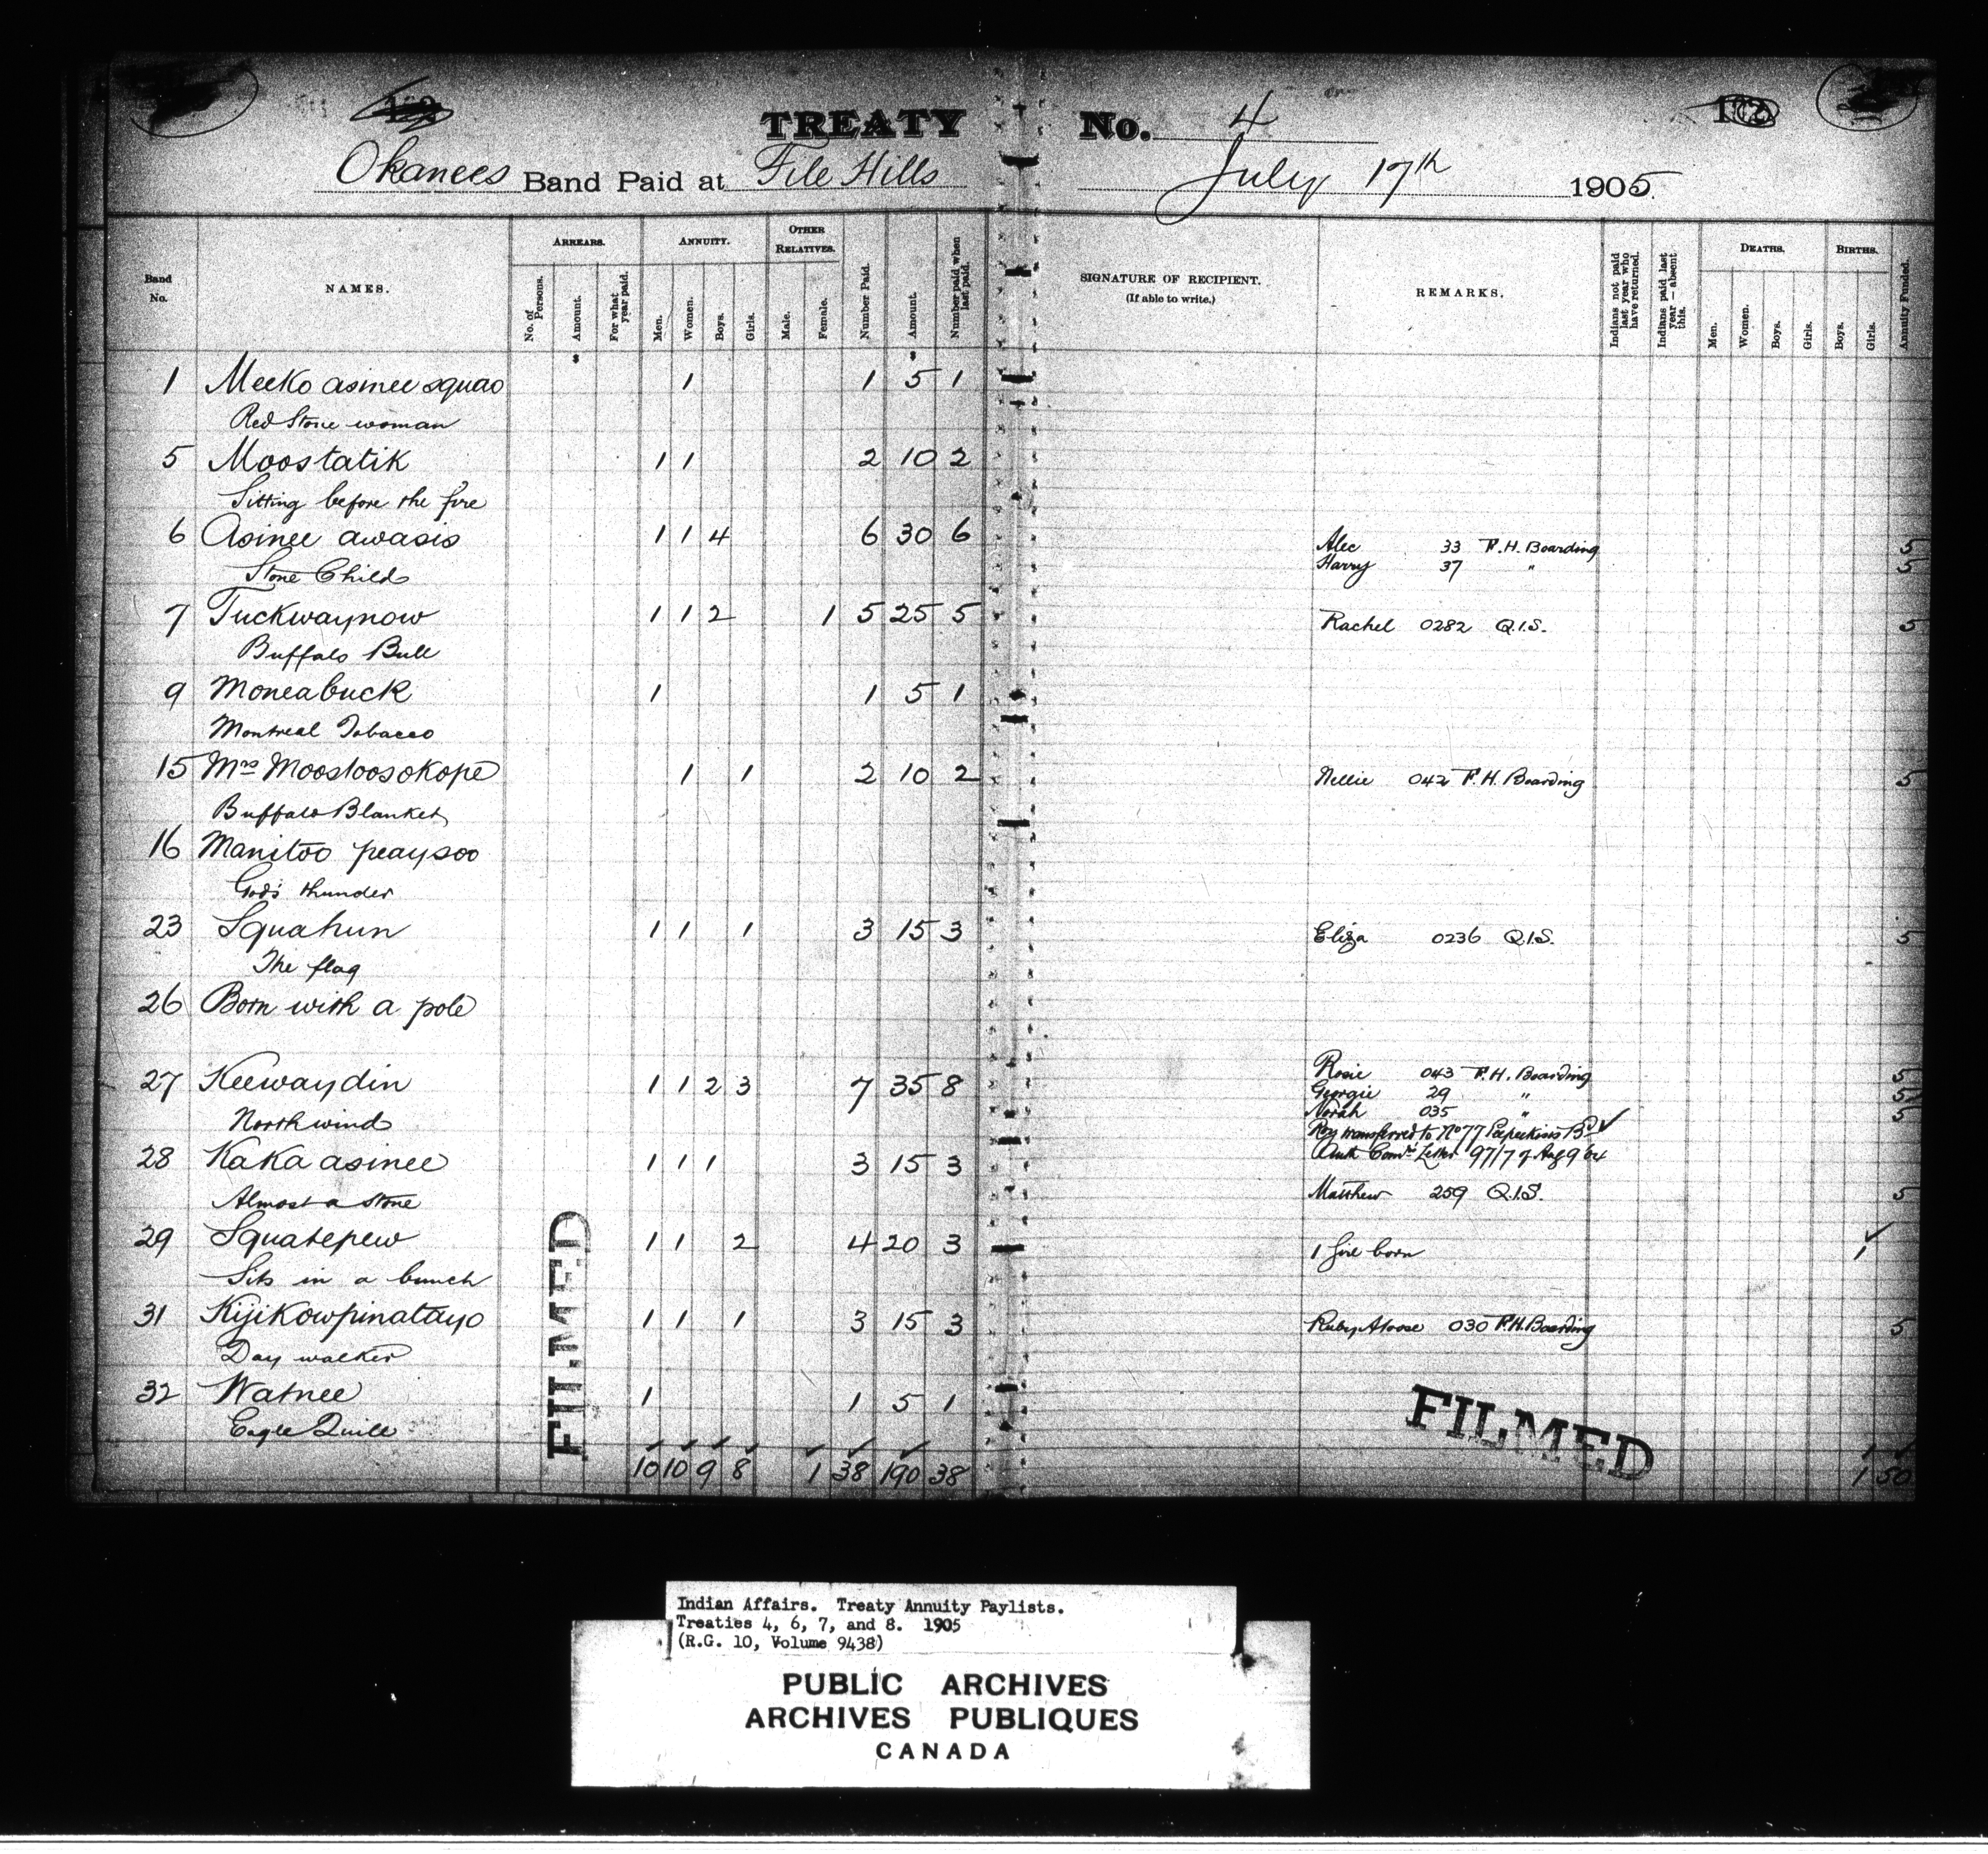 TREATY No. 4
Okanees Band Paid at File Hills July 17th 1905
Band No.
NAMES.
ARREARS.
No. of Persons.
Amount.
For what year paid.
ANNUITY.
Men.
Women.
Boys.
Girls.
OTHER RELATIVES.
Male.
Female.
Number Paid.
Amount.
Number paid when last paid.
SIGNATURE OF RECIPIENT.
(If able to write.)
REMARKS.
Indians not paid last year who have returned.
Indians paid last year — absent this.
DEATHS.
Men.
Women.
Boys.
Girls.
BIRTHS.
Boys.
Girls.
Annuity Funded.
$ $
1 Meeko asinee squao 1 1 5 1
Red Stone woman
5 Moostatik 1 1 2 10 2
Sitting before the fire
6 Asinee awasis 1 1 4 6 30 6 Alec 33 F.H. Boarding 5
Stone Child Harry 37 " 5
7 Tuckwaynow 1 1 2 1 5 25 5 Rachel 0282 Q.I.S. 5
Buffalo Bull
9 Moneabuck 1 1 5 1
Montreal Tobacco
15 Mrs Moostoosokope 1 1 2 10 2 Nellie 042 F.H. Boarding 5
Buffalo Blanket
16 Manitoo peaysoo
God's thunder
23 Squahun 1 1 1 3 15 3 Eliza 0236 Q.I.S. 5
The flag
26 Born with a pole
Rosie 043 F.H. Boarding 5
27 Keewaydin 1 1 2 3 7 35 8 Georgie 29 " 5
Norah 035 " 5
North wind Roy transferred to No 77 Peepeekisis Bd ✓
28 Kaka asinee 1 1 1 3 15 3 Auth Comrs Letter 97/7 of Aug 9 04
Almost a stone Matthew 259 Q.I.S. 5
29 Squatepew 1 1 2 4 20 3 1 girl born 1 ✓
Sits in a bunch
31 Kijikowpinatayo 1 1 1 3 15 3 Ruby Aloose 030 F.H. Boarding 5
Day walker
32 Watnee 1 1 5 1
Eagle Quill
10 10 9 8 1 38 190 38 1 50
FILMED
FILMED
Indian Affairs. Treaty Annuity Paylists.
Treaties 4, 6, 7, and 8. 1905
(R.G. 10, Volume 9438)
PUBLIC ARCHIVES
ARCHIVES PUBLIQUES
CANADA